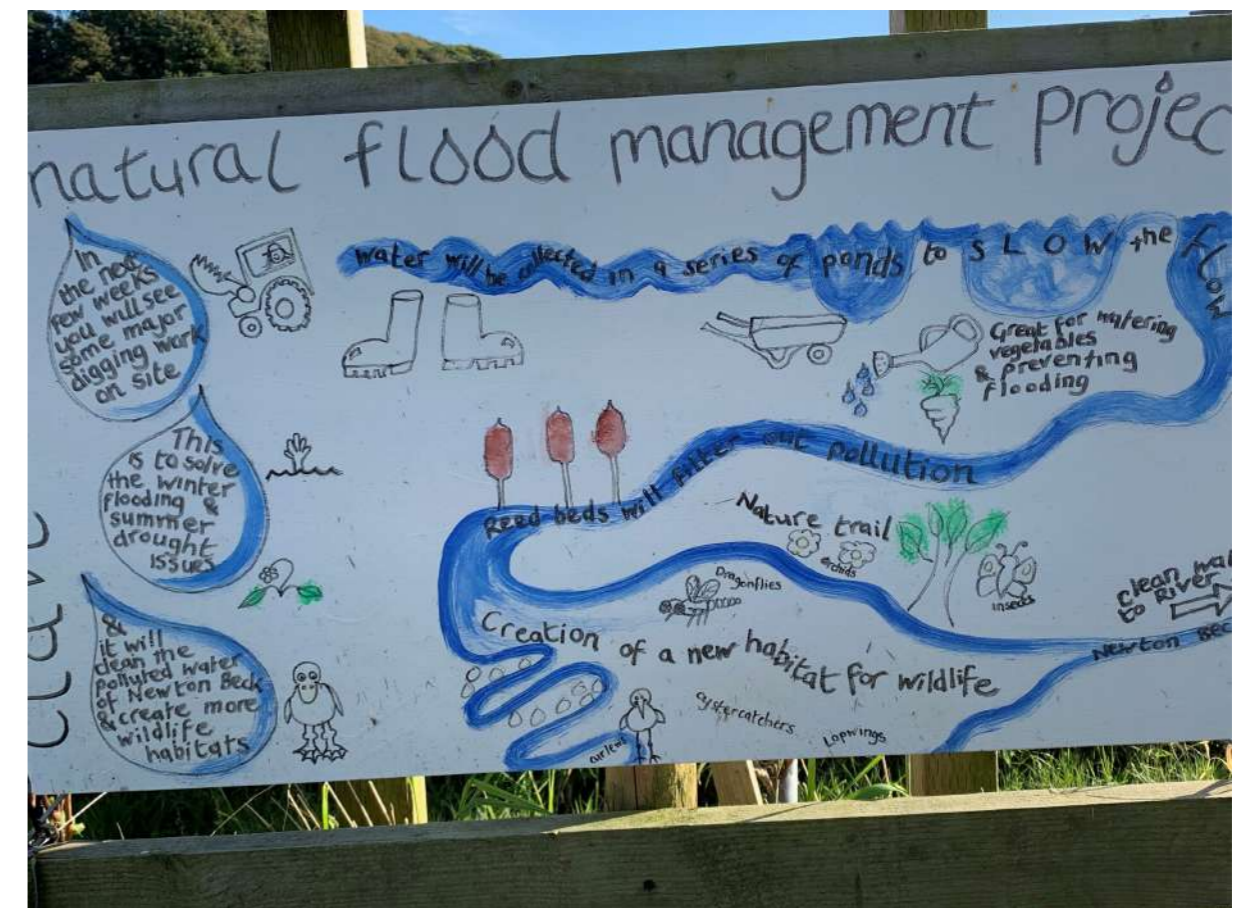 natural flood management projec
In
the next
few weeks
you will see
some major
digging work
on site
This
is to solve
the winter
flooding &
summer
drought
issues
&
it will
clean the
polluted water
of Newton Beck
& create more
wildlife
habitats
water will be collected in a series of ponds to SLOW the flow
Great for watering
vegetables
& preventing
flooding
Reed beds will filter out pollution
Nature trail
orchids
insects
Dragonflies
Creation of a new habitat for wildlife
curlews
oystercatchers
Lapwings
clean wat
to River
Newton Bec